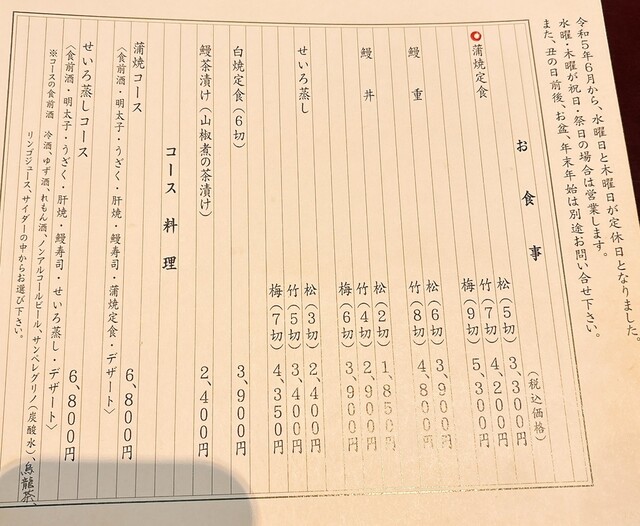 令和5年6月から、水曜日と木曜日が定休日となりました。
水曜・木曜が祝日・祭日の場合は営業します。
また、丑の日前後、お盆、年末年始は別途お問い合せ下さい。
お食事
(税込価格)
蒲焼定食
松(5切) 3,300円
竹(7切) 4,200円
梅(9切) 5,300円
鰻重
松(6切) 3,900円
竹(8切) 4,800円
鰻丼
松(2切) 1,850円
竹(4切) 2,900円
梅(6切) 3,900円
せいろ蒸し
松(3切) 2,400円
竹(5切) 3,400円
梅(7切) 4,350円
白焼定食(6切) 3,900円
鰻茶漬け(山椒煮の茶漬け) 2,400円
コース料理
蒲焼コース 6,800円
〈食前酒・明太子・うざく・肝焼・鰻寿司・蒲焼定食・デザート〉
せいろ蒸しコース 6,800円
〈食前酒・明太子・うざく・肝焼・鰻寿司・せいろ蒸し・デザート〉
※コースの食前酒 冷酒、ゆず酒、れもん酒、ノンアルコールビール、サンペレグリノ(炭酸水)、烏龍茶、
リンゴジュース、サイダーの中からお選び下さい。